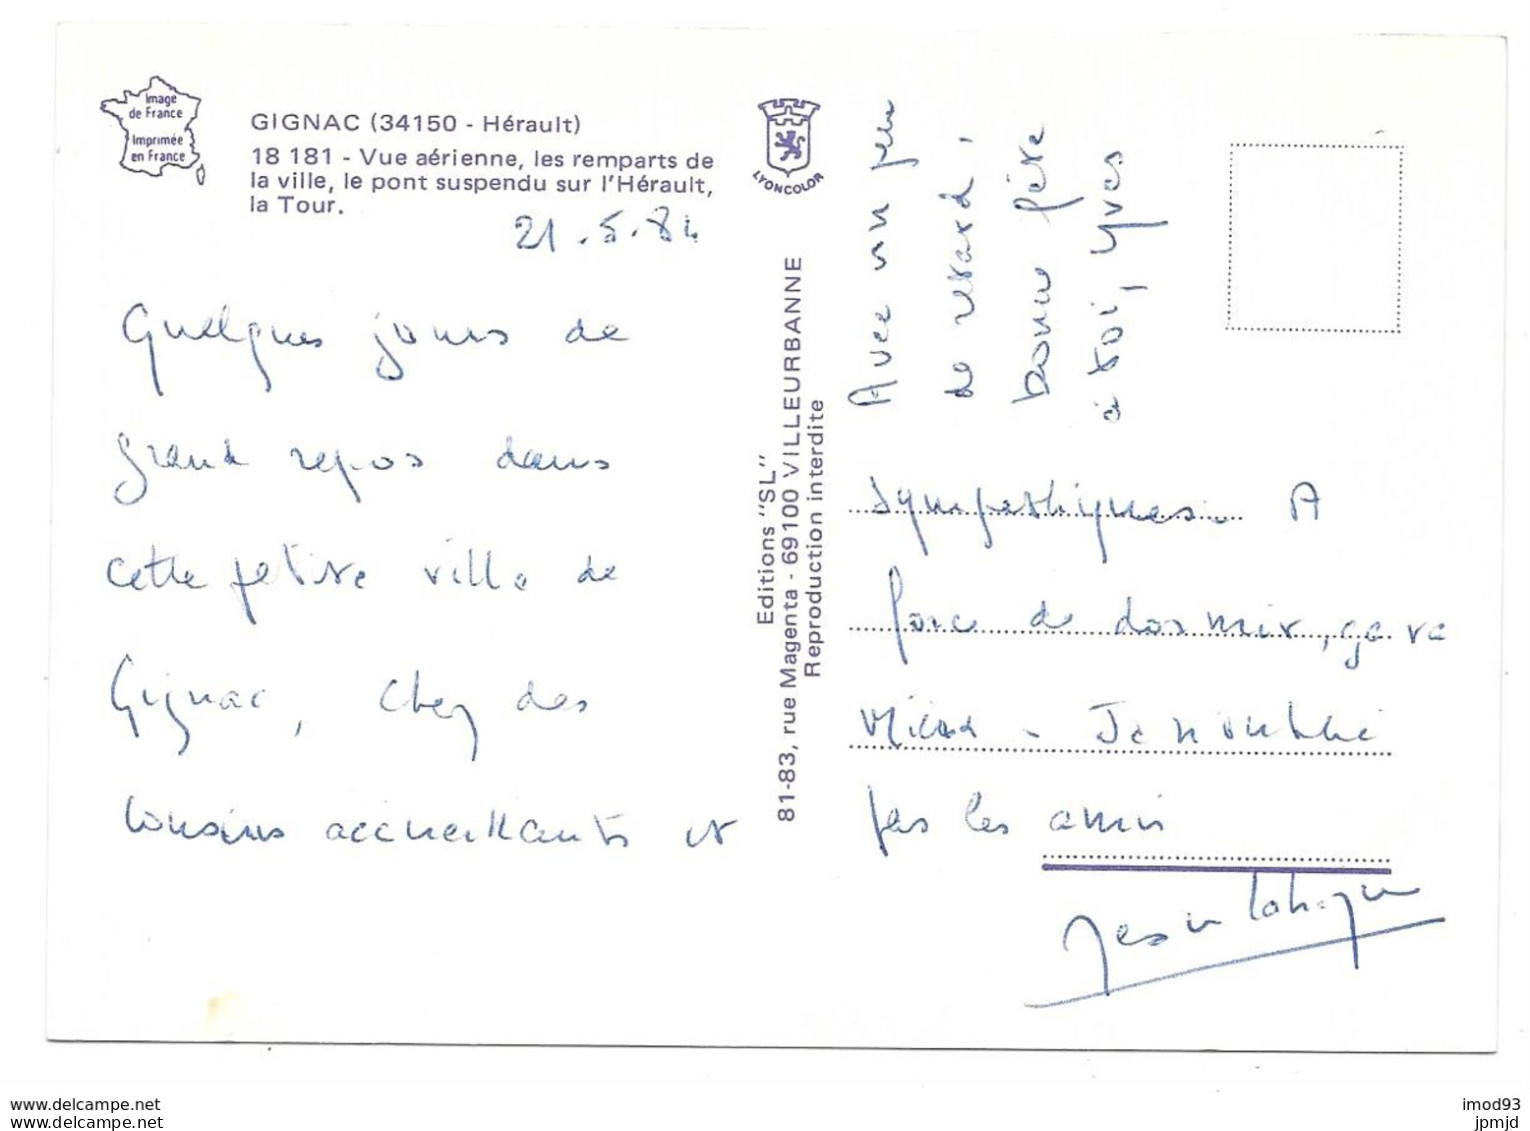 Image
de France
Imprimée
en France
GIGNAC (34150 - Hérault)
18 181 - Vue aérienne, les remparts de
la ville, le pont suspendu sur l'Hérault,
la Tour.
21.5.84
Quelques jours de
grand repos dans
cette petite ville de
Gignac, chez des
cousins accueillants et
LYONCOLOR
Editions "SL"
81-83, rue Magenta - 69100 VILLEURBANNE
Reproduction interdite
Avec un peu
de retard,
bonne fête
à toi, Yves
sympathiques. A
force de dormir, ça va
mieux. Je n'oublie
pas les amis
delcampe.net
www.delcampe.net
imod93
jpmjd